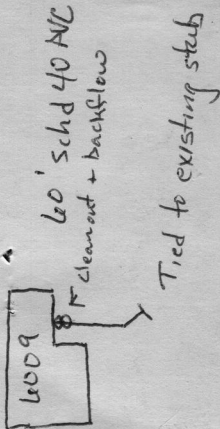 60' Schd 40 PVC
cleanout + backflow
6009
Tied to existing stub